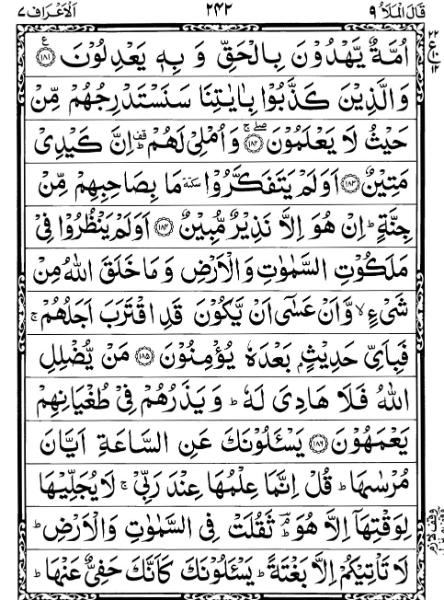 قَالَ الْمَلَاُ ٩ ٢٤٢ اَلْاَعْرَاف ٧
اُمَّةٌ يَّهْدُوْنَ بِالْحَقِّ وَ بِهٖ يَعْدِلُوْنَ ﴿١٨١﴾
وَالَّذِيْنَ كَذَّبُوْا بِاٰيٰتِنَا سَنَسْتَدْرِجُهُمْ مِّنْ
حَيْثُ لَا يَعْلَمُوْنَ ﴿١٨٢﴾ وَاُمْلِيْ لَهُمْ ؕ اِنَّ كَيْدِيْ
مَتِيْنٌ ﴿١٨٣﴾ اَوَلَمْ يَتَفَكَّرُوْا سكتة مَا بِصَاحِبِهِمْ مِّنْ
جِنَّةٍ ؕ اِنْ هُوَ اِلَّا نَذِيْرٌ مُّبِيْنٌ ﴿١٨٤﴾ اَوَلَمْ يَنْظُرُوْا فِيْ
مَلَكُوْتِ السَّمٰوٰتِ وَالْاَرْضِ وَمَا خَلَقَ اللّٰهُ مِنْ
شَيْءٍ ۙ وَّاَنْ عَسٰٓى اَنْ يَّكُوْنَ قَدِ اقْتَرَبَ اَجَلُهُمْ ۚ
فَبِاَيِّ حَدِيْثٍۭ بَعْدَهٗ يُؤْمِنُوْنَ ﴿١٨٥﴾ مَنْ يُّضْلِلِ
اللّٰهُ فَلَا هَادِيَ لَهٗ ؕ وَيَذَرُهُمْ فِيْ طُغْيَانِهِمْ
يَعْمَهُوْنَ ﴿١٨٦﴾ يَسْـَٔلُوْنَكَ عَنِ السَّاعَةِ اَيَّانَ
مُرْسٰىهَا ؕ قُلْ اِنَّمَا عِلْمُهَا عِنْدَ رَبِّيْ ۚ لَا يُجَلِّيْهَا
لِوَقْتِهَآ اِلَّا هُوَ ؔؕ ثَقُلَتْ فِي السَّمٰوٰتِ وَالْاَرْضِ ؕ
لَا تَاْتِيْكُمْ اِلَّا بَغْتَةً ؕ يَسْـَٔلُوْنَكَ كَاَنَّكَ حَفِيٌّ عَنْهَا ؕ
٢٢
ع ١٠
١٢
وقف لازم